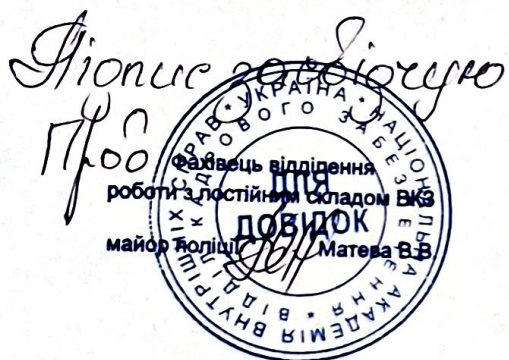 Підпис засвідчую
Фахівець відділення
роботи з постійним складом ВКЗ
майор поліції Матева В.В
ДЛЯ
ДОВІДОК
УКРАЇНА * НАЦІОНАЛЬНА АКАДЕМІЯ ВНУТРІШНІХ СПРАВ *
ВІДДІЛ КАДРОВОГО ЗАБЕЗПЕЧЕННЯ *